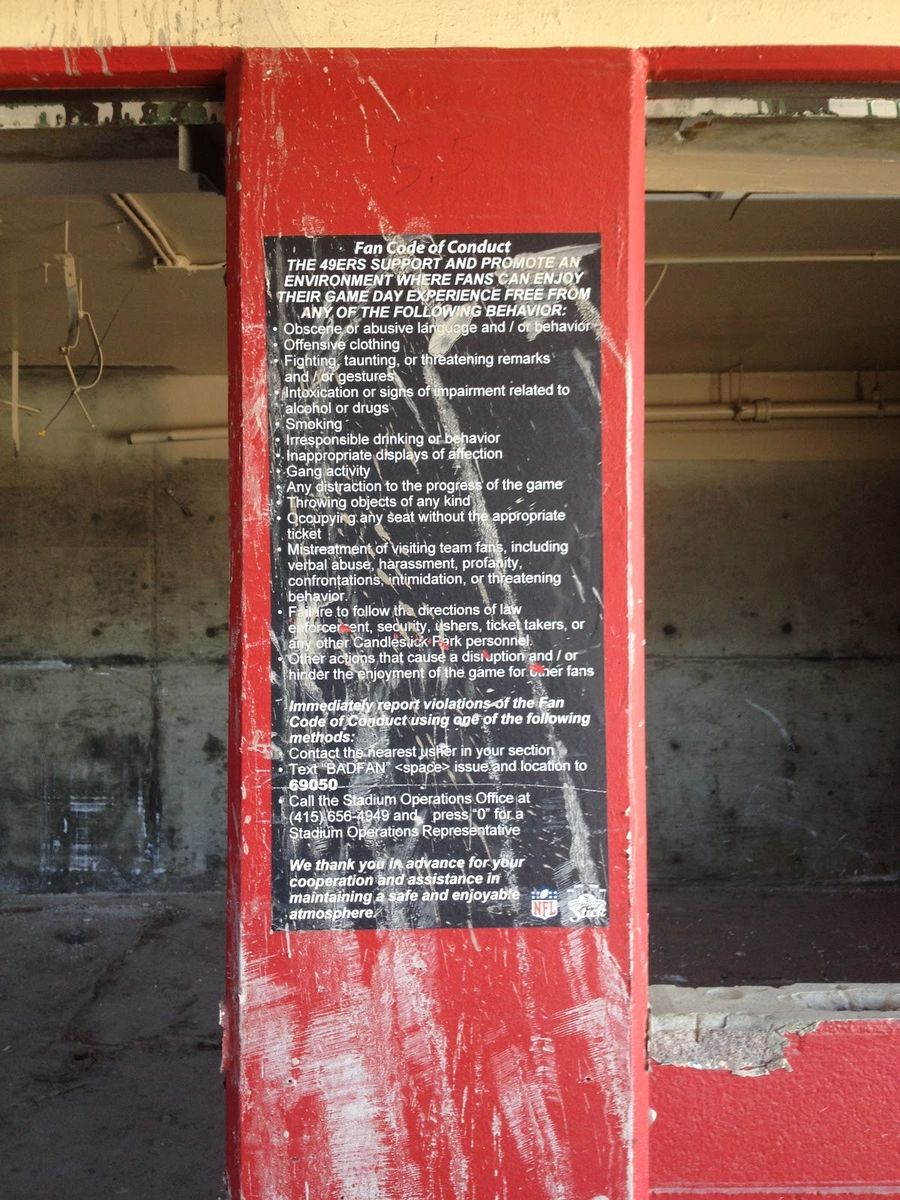 5.5
Fan Code of Conduct
THE 49ERS SUPPORT AND PROMOTE AN
ENVIRONMENT WHERE FANS CAN ENJOY
THEIR GAME DAY EXPERIENCE FREE FROM
ANY OF THE FOLLOWING BEHAVIOR:
• Obscene or abusive language and / or behavior
Offensive clothing
• Fighting, taunting, or threatening remarks
and / or gestures
• Intoxication or signs of impairment related to
alcohol or drugs
• Smoking
• Irresponsible drinking or behavior
• Inappropriate displays of affection
• Gang activity
• Any distraction to the progress of the game
• Throwing objects of any kind
• Occupying any seat without the appropriate
ticket
• Mistreatment of visiting team fans, including
verbal abuse, harassment, profanity,
confrontations, intimidation, or threatening
behavior.
• Failure to follow the directions of law
enforcement, security, ushers, ticket takers, or
any other Candlestick Park personnel.
• Other actions that cause a disruption and / or
hinder the enjoyment of the game for other fans
Immediately report violations of the Fan
Code of Conduct using one of the following
methods:
• Contact the nearest usher in your section
• Text “BADFAN” <space> issue and location to
69050
• Call the Stadium Operations Office at
(415) 656-4949 and press “0” for a
Stadium Operations Representative
We thank you in advance for your
cooperation and assistance in
maintaining a safe and enjoyable
atmosphere.
NFL
Stick